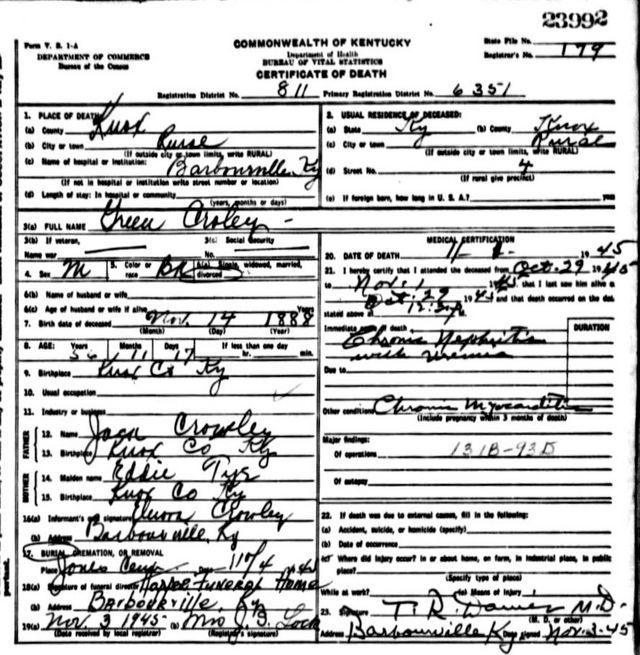 23992
Form V. S. 1-A
DEPARTMENT OF COMMERCE
Bureau of the Census
COMMONWEALTH OF KENTUCKY
Department of Health
BUREAU OF VITAL STATISTICS
CERTIFICATE OF DEATH
State File No.
Registrar's No. 179
Registration District No. 811 Primary Registration District No. 6351
1. PLACE OF DEATH
(a) County Knox
(b) City or town Rural
(If outside city or town limits, write RURAL)
(c) Name of hospital or institution: Barbourville, Ky
(If not in hospital or institution write street number or location)
(d) Length of stay: In hospital or community
(years, months or days)
2. USUAL RESIDENCE OF DECEASED:
(a) State Ky (b) County Knox
(c) City or town Rural
(If outside city or town limits, write RURAL)
(d) Street No. 4
(If rural give precinct)
(e) If foreign born, how long in U. S. A.? years
3(a) FULL NAME Green Croley
3(b) If veteran,
Name war
3(c) Social Security
No.
4. Sex M
5. Color or race
6(a) Single, widowed, married,
divorced
6(b) Name of husband or wife
6(c) Age of husband or wife if alive Years
7. Birth date of deceased Nov. 14 1888
(Month) (Day) (Year)
8. AGE: Years 56 Months 11 Days 17 If less than one day
hr. min.
9. Birthplace Knox Co Ky
10. Usual occupation
11. Industry or business
FATHER
12. Name Crowley
13. Birthplace Knox Co Ky
MOTHER
14. Maiden name Eddie
15. Birthplace Knox Co Ky
16(a) Informant's own signature Crowley
(b) Address Barbourville, Ky
17. BURIAL, CREMATION, OR REMOVAL
Place Jones Cem 11/4 1945
18(a) Signature of funeral director Harper Funeral Home
(b) Address Barbourville, Ky
19(a) Nov. 3 1945 (b) Mrs J. B. Lock
(Date received by local registrar) (Registrar's signature)
MEDICAL CERTIFICATION
20. DATE OF DEATH 11 1 1945
21. I hereby certify that I attended the deceased from Oct. 29 1945
to Nov. 1 1945, that I last saw him alive on
Oct. 29 1945 and that death occurred on the date
stated above at
Immediate cause of death DURATION
Chronic Nephritis
with Uremia
Due to
Other conditions Chronic Myocarditis
(Include pregnancy within 3 months of death)
Major findings:
Of operations 131B-93D
Of autopsy
22. If death was due to external causes, fill in the following:
(a) Accident, suicide, or homicide (specify)
(b) Date of occurrence
(c) Where did injury occur? in or about home, on farm, in industrial place, in public
place?
(Specify type of place)
While at work? (e) Means of Injury
23. Signature T. R. Davies M.D.
(M. D. or other)
Address Barbourville Ky Date signed Nov-3-45